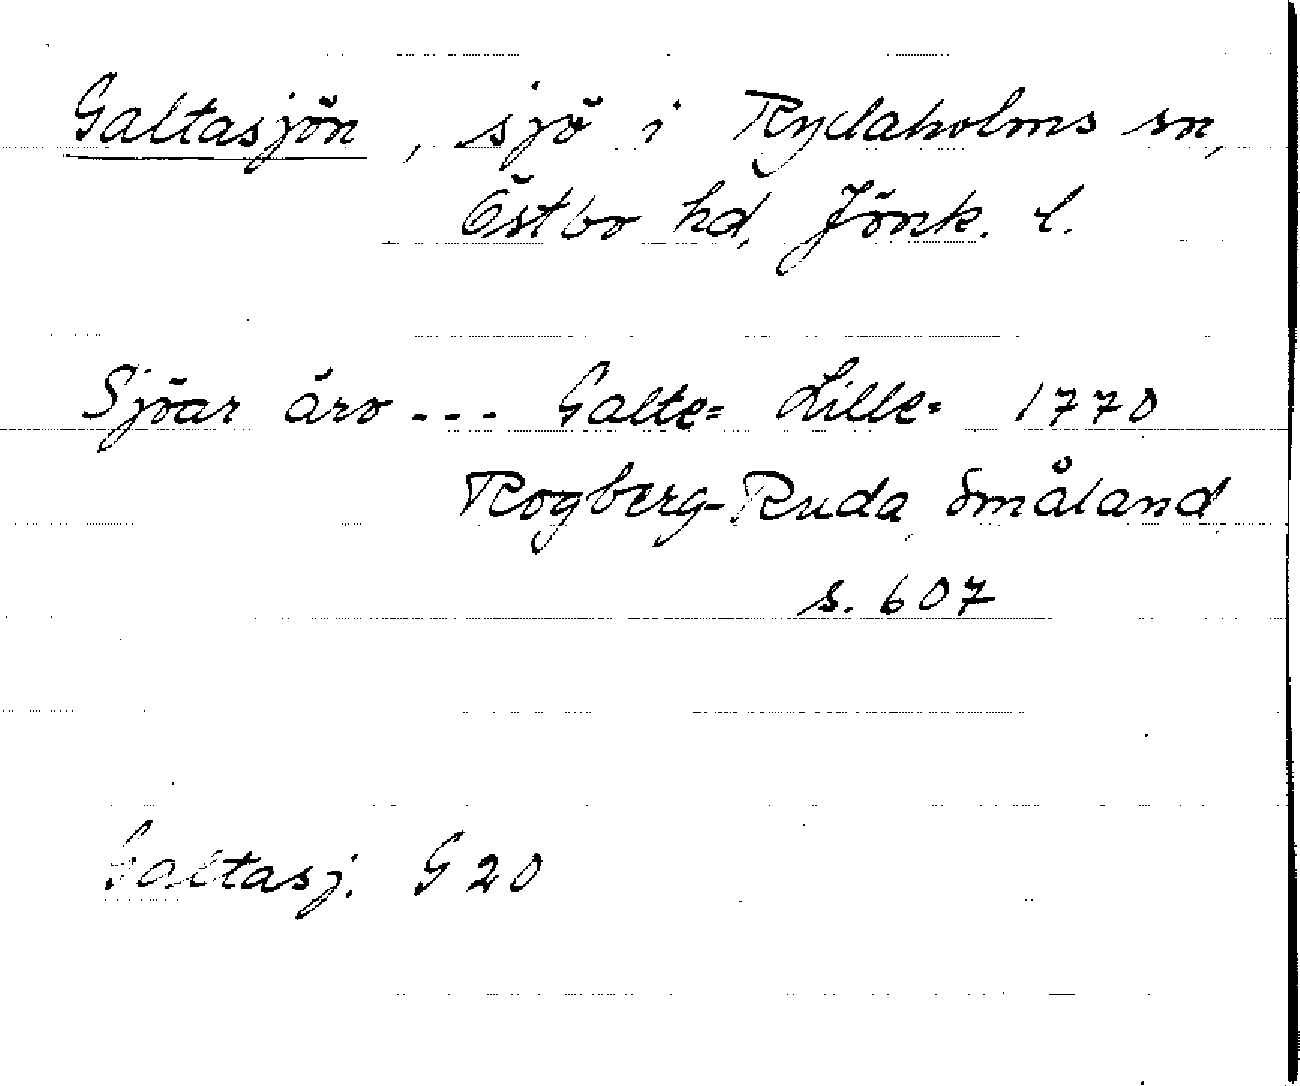 Galtasjön, sjö i Rydaholms sn,
Östbo hd, Jönk. l.
Sjöar äro --- Galte= Lille= 1770
Rogberg-Ruda, Småland
s. 607
Galtasj. G 20